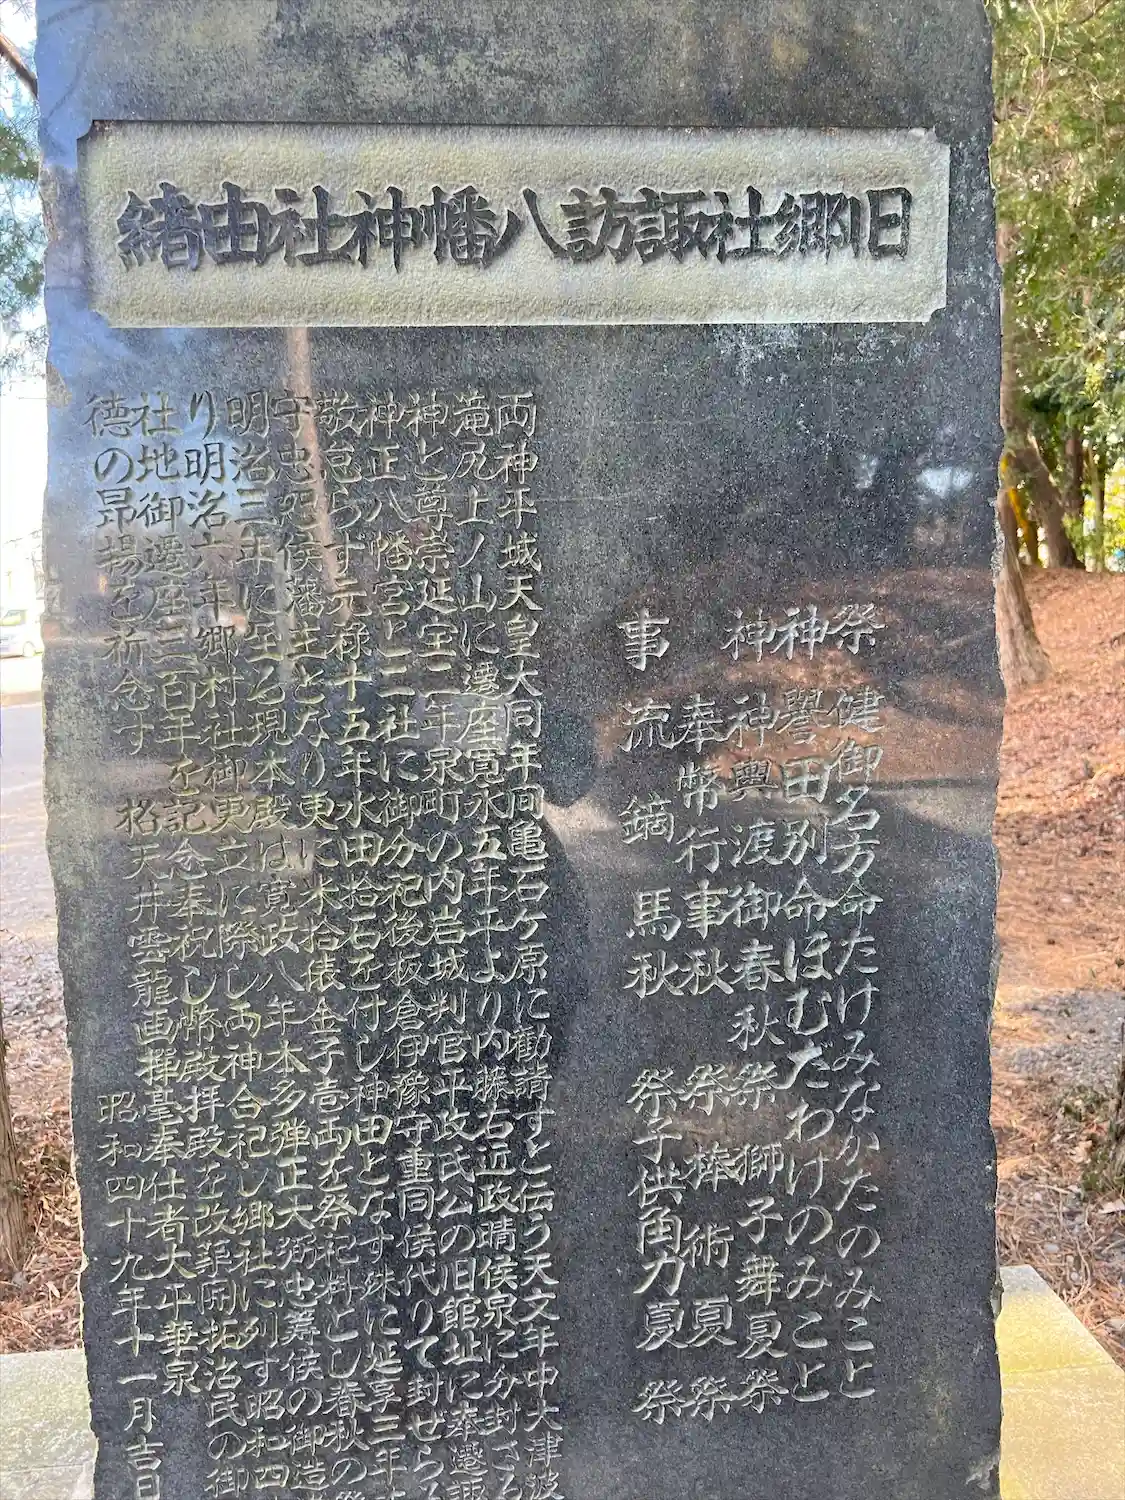 旧郷社諏訪八幡神社由緒
祭 健御名方命たけみなかたのみこと
神 譽田別命ほむだわけのみこと
神 神輿渡御春秋祭 獅子舞夏祭
奉幣行事秋 祭 棒術夏祭
事 流鏑馬秋 祭子供角力夏祭
両神平城天皇大同年间亀石ケ原に勧請すと伝う天文年中大津波
滝尻上ノ山に遷座寛永五年平より内藤右近政晴侯泉に分封さる
神と尊崇延宝二年泉町の内岩城判官平政氏公の旧館址に奉遷諏
神正八幡宮と二社に御分祀後板倉伊豫守重同侯代りて封ぜらる
敬怠らず元禄十五年水田拾石を付し神田となす殊に延享三年
守忠侯藩主となり更に米拾俵金子壱両を祭祀料とし春秋の祭
明治三年に至る現本殿は寛政八年本多弾正大弼忠籌侯の御造
り明治六年郷村社御更立に際し両神合祀し郷社に列す昭和四
社地御遷座三百年を記念奉祝し幣殿拝殿を改築開拓治民の御
徳の昂揚を祈念す 格天井雲龍画揮毫奉仕者大平華泉
昭和四十九年十一月吉日